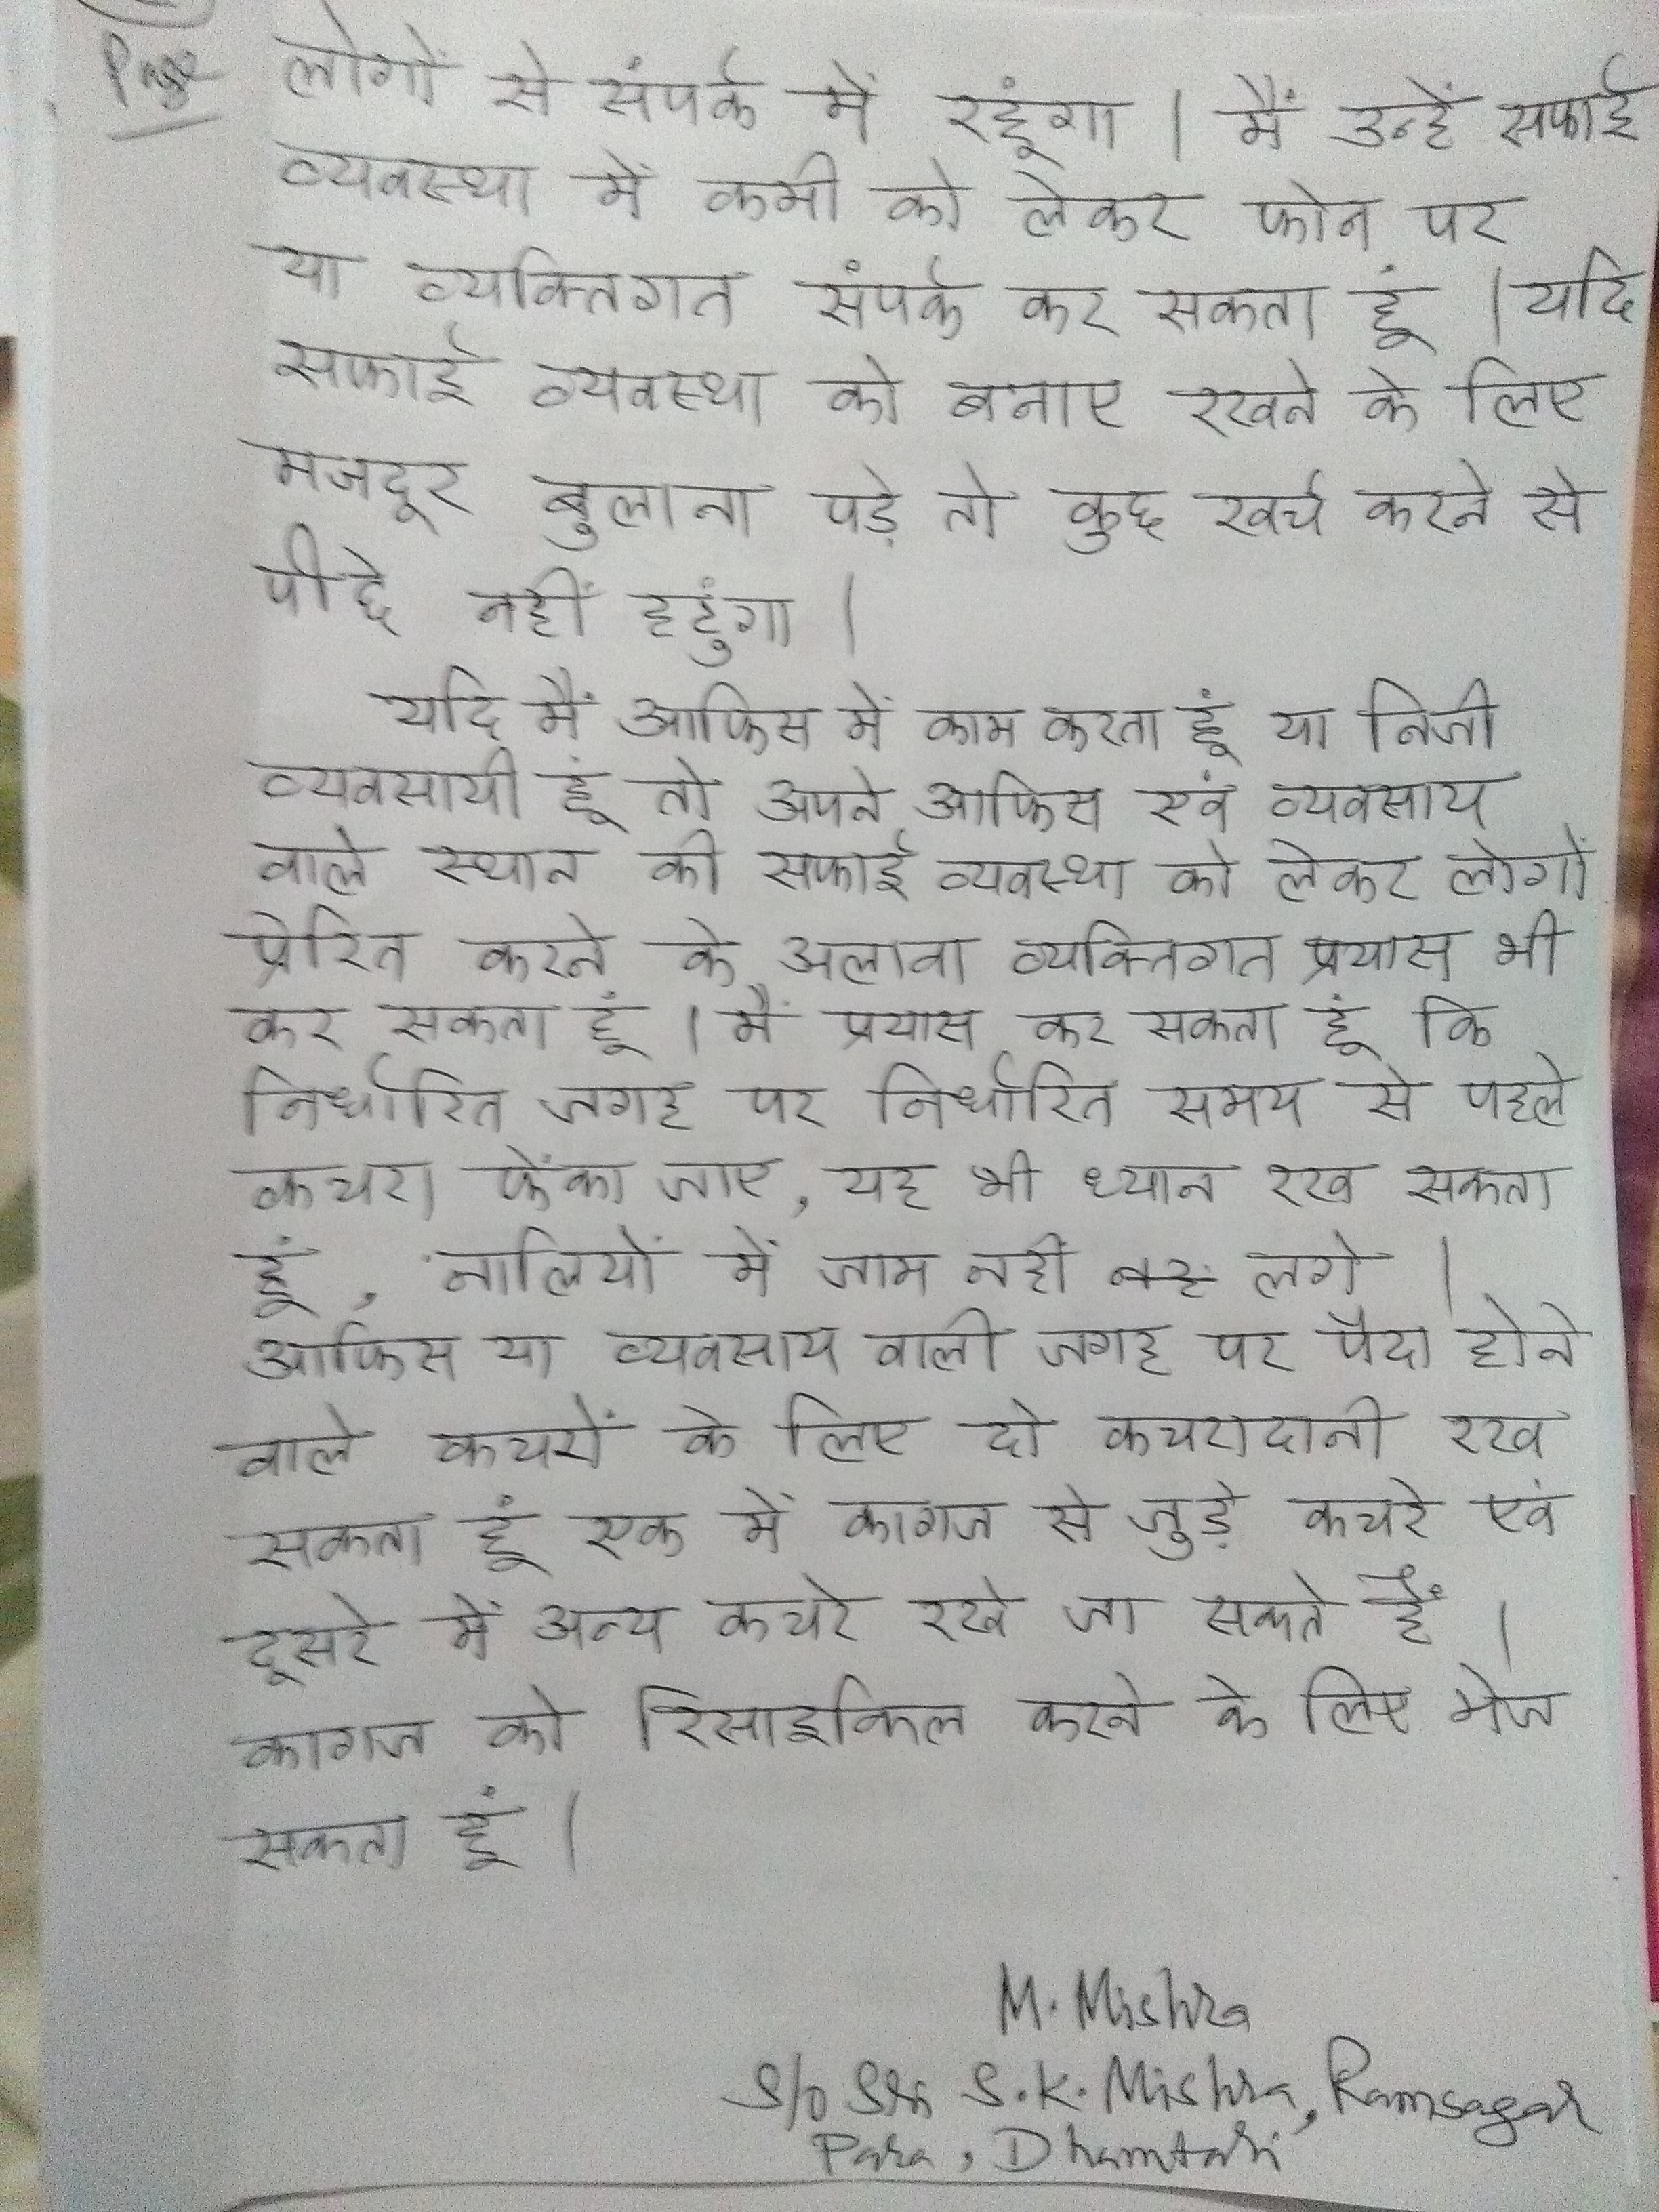 लोगों से संपर्क में रहूंगा । मैं उन्हें सफाई
व्यवस्था में कमी को लेकर फोन पर
या व्यक्तिगत संपर्क कर सकता हूं । यदि
सफाई व्यवस्था को बनाए रखने के लिए
मजदूर बुलाना पड़े तो कुछ खर्च करने से
पीछे नहीं हटुंगा ।
यदि मैं आफिस में काम करता हूं या निजी
व्यवसायी हूं तो अपने आफिस एवं व्यवसाय
वाले स्थान की सफाई व्यवस्था को लेकर लोगों
प्रेरित करने के अलावा व्यक्तिगत प्रयास भी
कर सकता हूं । मैं प्रयास कर सकता हूं कि
निर्धारित जगह पर निर्धारित समय से पहले
कचरा फेंका जाए, यह भी ध्यान रख सकता
हूं, नालियों में जाम नहीं लगे ।
आफिस या व्यवसाय वाली जगह पर पैदा होने
वाले कचरों के लिए दो कचरादानी रख
सकता हूं एक में कागज से जुड़े कचरे एवं
दूसरे में अन्य कचरे रखे जा सकते हैं ।
कागज को रिसाइकिल करने के लिए भेज
सकता हूं ।
M. Mishra
S/o Shri S.K. Mishra, Ramsagar
Para, Dhamtari